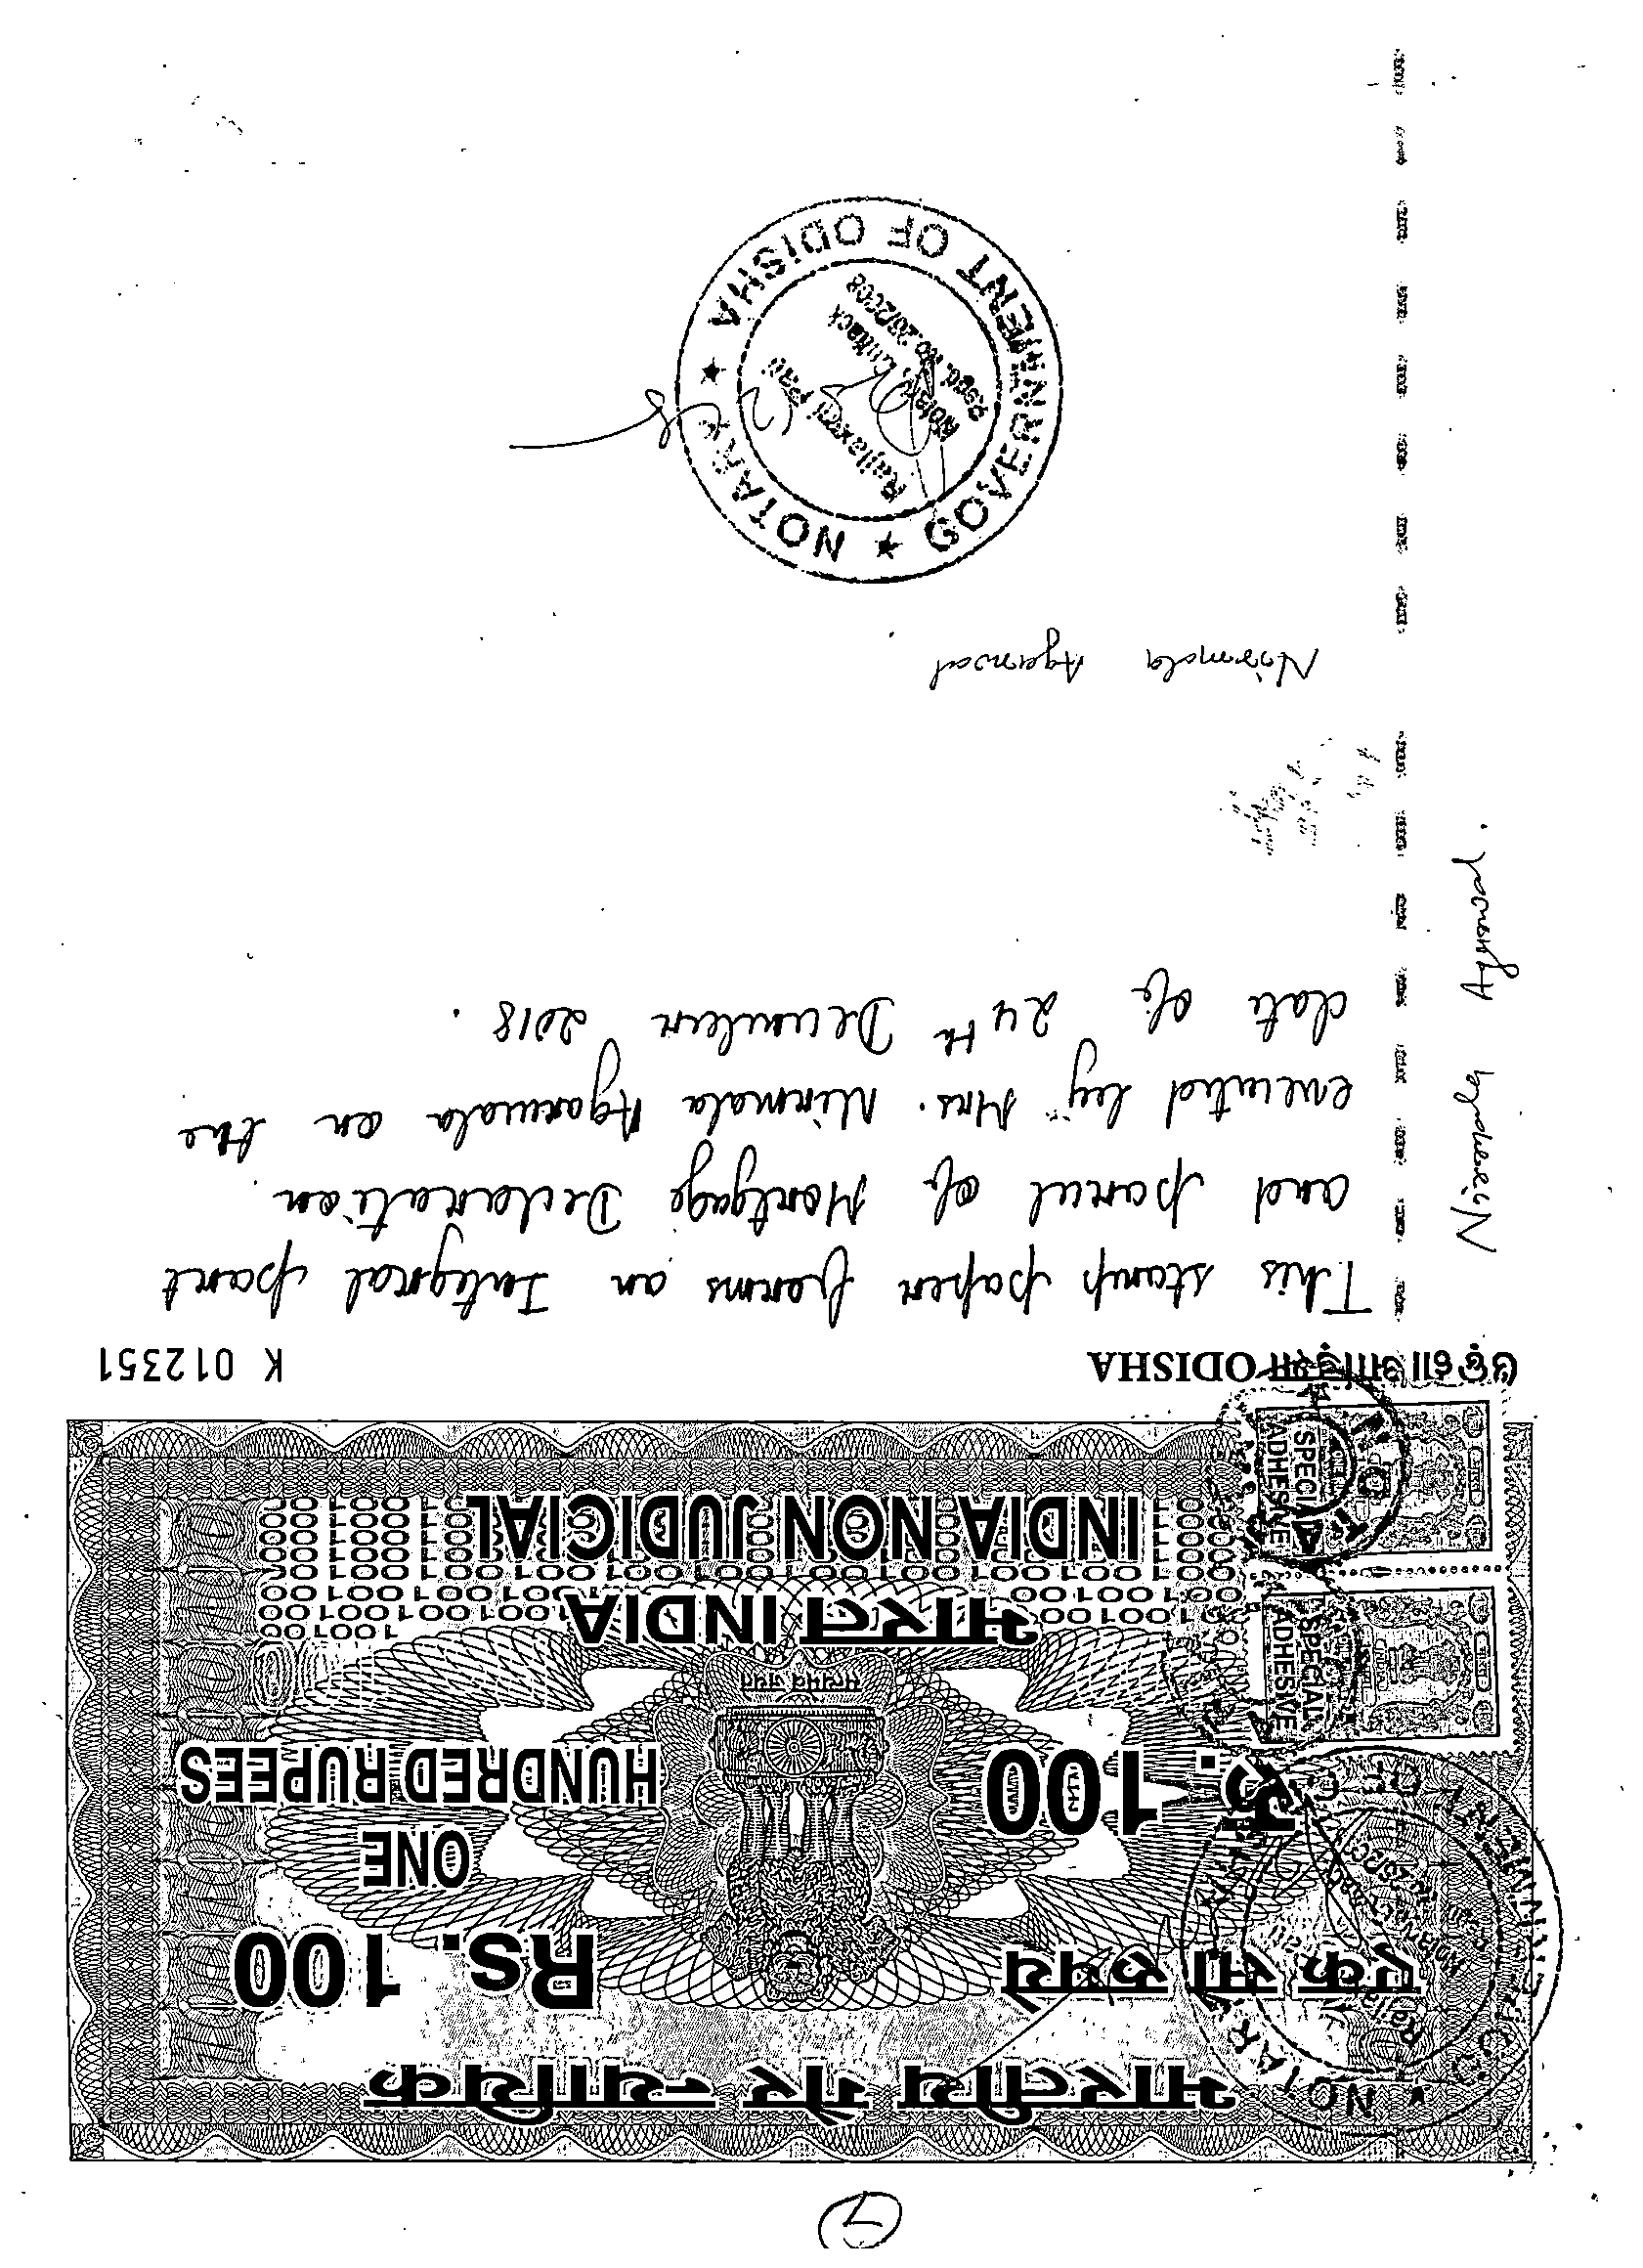 7
भारतीय गैर न्यायिक
एक सौ रुपये
Rs. 100
रु. 100
ONE
HUNDRED RUPEES
सत्यमेव जयते
भारत INDIA
INDIA NON JUDICIAL
SPECIAL
ADHESIVE
SPECIAL
ADHESIVE
ଓଡ଼ିଶା ओड़िशा ODISHA
K 012351
This stamp paper forms an Integral part
and parcel of Mortgage Declaration
executed by Mrs. Nirmala Agarwala on the
date of 24th December 2018.
Nirmala Agarwal.
Nirmala Agarwal
NOTARY ★ GOVERNMENT OF ODISHA ★
Notary, Cuttack
Regd. No.